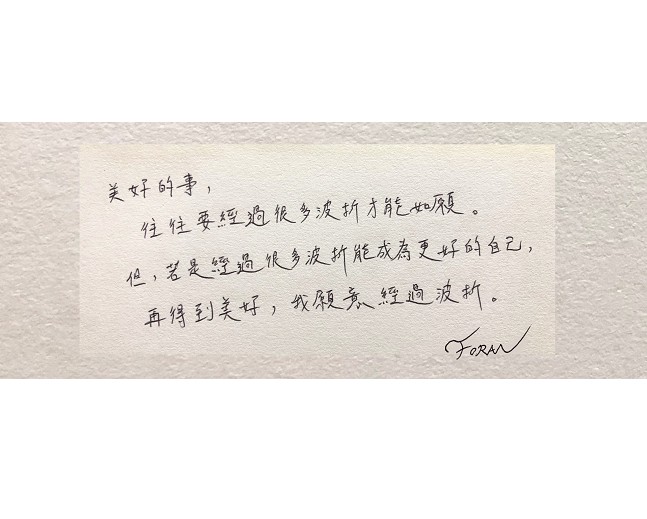 美好的事，
往往要經過很多波折才能如願。
但，若是經過很多波折能成為更好的自己，
再得到美好，我願意經過波折。
FORAN